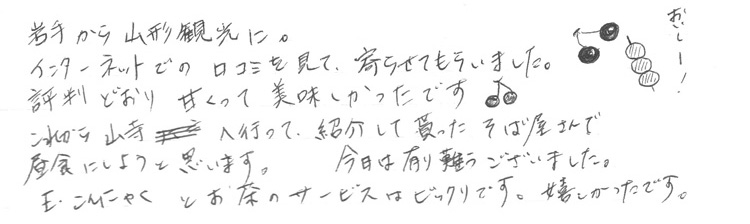 岩手から山形観光に。
インターネットでの口コミを見て、寄らせてもらいました。
評判どおり甘くって美味しかったです
これから山寺へ行って、紹介して貰ったそば屋さんで
昼食にしようと思います。 今日は有り難うございました。
玉こんにゃくとお茶のサービスはビックリです。嬉しかったです。
おいしー!